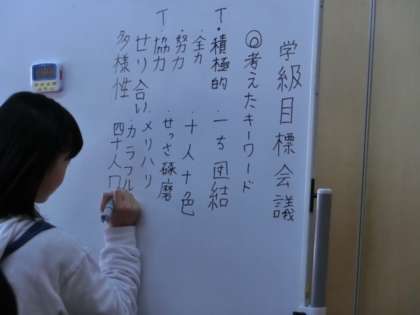 学級目標会議
◎考えたキーワード
T・積極的 ・一ち団結
・全力 ・十人十色
・努力 ・せっさ琢磨
T・協力 ・メリハリ
・せり合い ・カラフル
・多様性 ・四十人